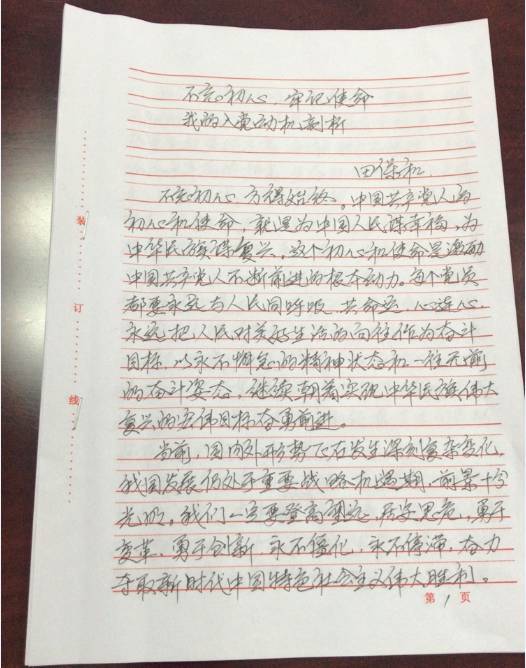 不忘初心、牢记使命
我的入党动机剖析
田保和
不忘初心 方得始终。中国共产党人的
初心和使命 就是为中国人民谋幸福,为
中华民族谋复兴。这个初心和使命是激励
中国共产党人不断前进的根本动力。每个党员
都要永远与人民同呼吸 共命运 心连心
永远把人民对美好生活的向往作为奋斗
目标 以永不懈怠的精神状态和一往无前
的奋斗姿态 继续朝着实现中华民族伟大
复兴的宏伟目标奋勇前进。
当前,国内外形势正在发生深刻复杂变化,
我国发展仍处于重要战略机遇期,前景十分
光明。我们一定要登高望远 居安思危,勇于
变革、勇于创新 永不僵化、永不停滞,奋力
夺取新时代中国特色社会主义伟大胜利。
装
订
线
第 1 页